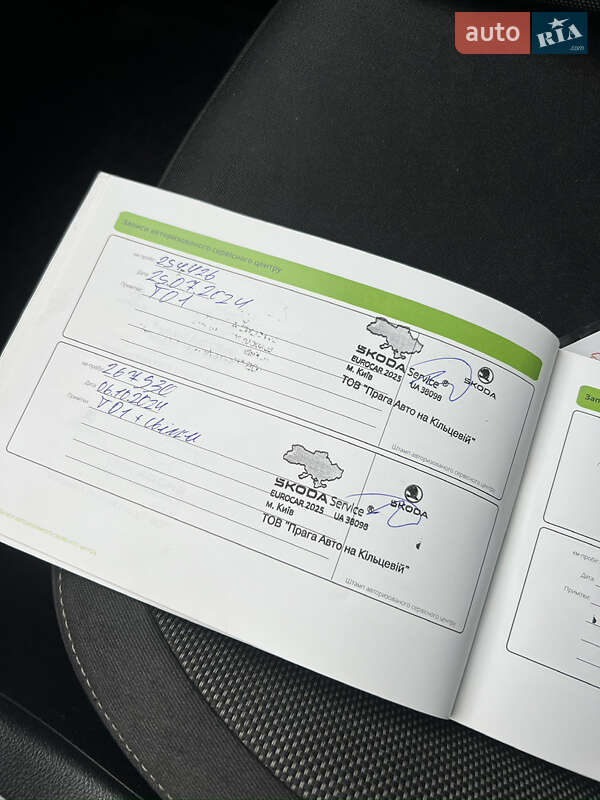 auto RIA .com
Записи авторизованого сервісного центру
км пробіг 254426
Дата 25.07.2024
Примітки: ТО1
ŠKODA Service®
EUROCAR 2025 UA 38098
м. Київ
ТОВ "Прага Авто на Кільцевій"
ŠKODA
Штамп авторизованого сервісного центру
км пробіг 267920
Дата 06.10.2024
Примітки: ТО1 + свічки
ŠKODA Service®
EUROCAR 2025 UA 38098
м. Київ
ТОВ "Прага Авто на Кільцевій"
ŠKODA
Штамп авторизованого сервісного центру
Записи авторизованого сервісного центру
Зап
км пробіг
Дата
Примітки: